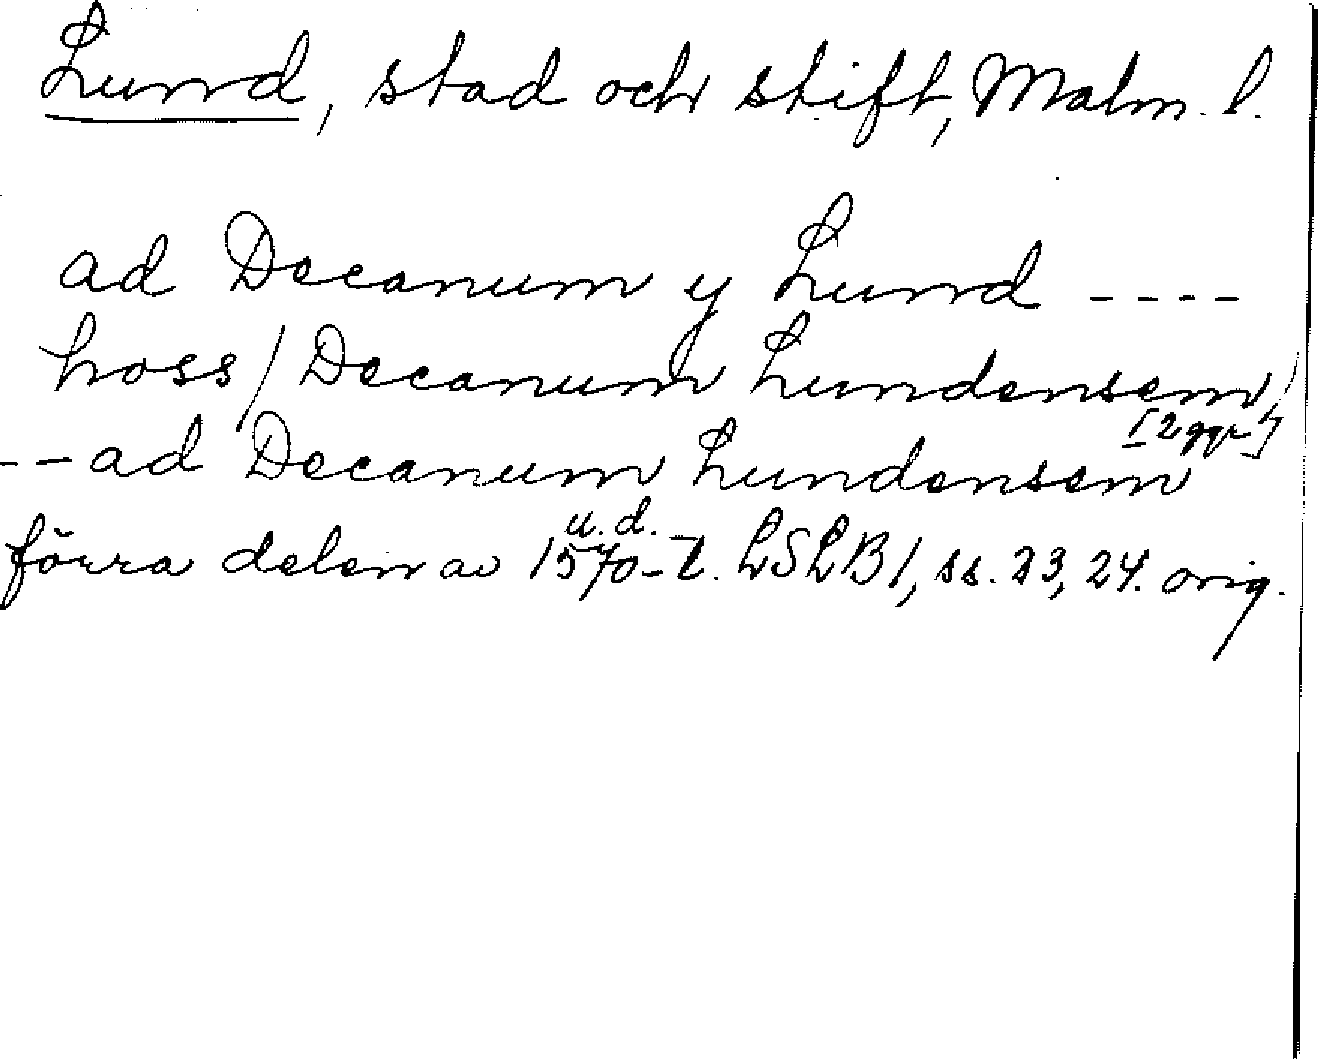 Lund, stad och stift, Malm. l.
ad Decanum y Lund ----
hoss/Decanum Lundensem,
[2 ggr]
--ad Decanum Lundensem
u. d.
förra delen av 1570-t. LSLB1, ss. 23, 24. orig.